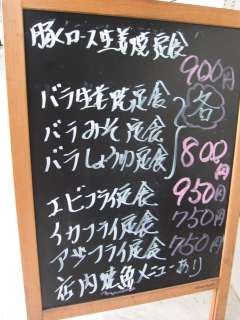 豚ロース生姜焼定食
900円
バラ生姜焼定食
バラみそ定食
バラしょうゆ定食
各
800円
エビフライ定食 950円
イカフライ定食 750円
アジフライ定食 750円
店内焼魚メニューあり